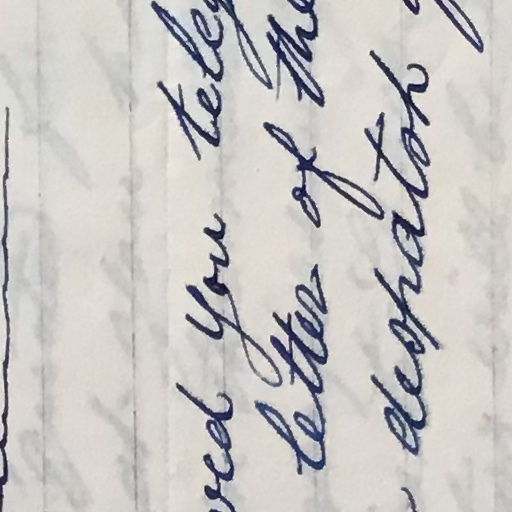 ved you teleg
letter of the
despatch